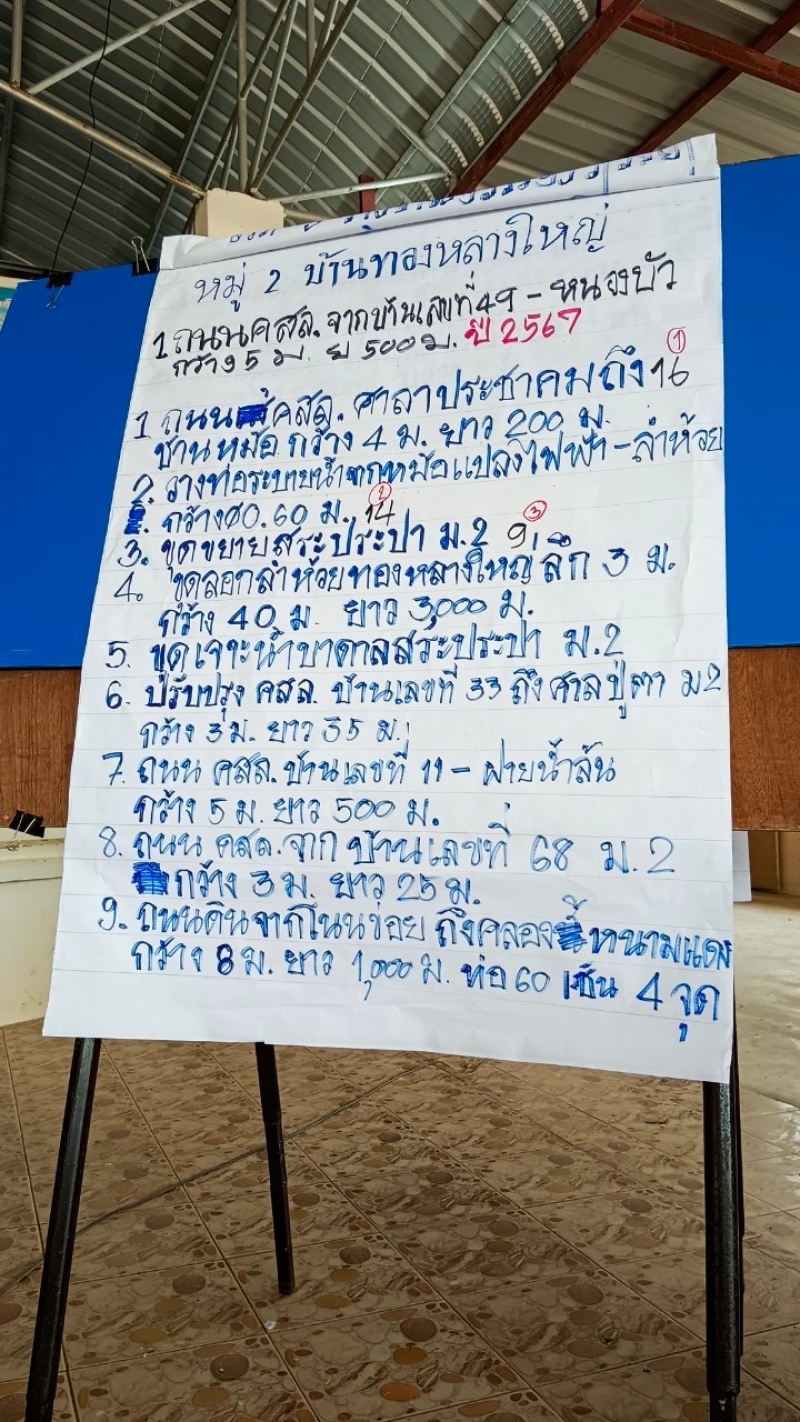 หมู่ 2 บ้านทองหลางใหญ่
1 ถนนคสล. จากบ้านเลขที่ 49 - หนองบัว
กว้าง 5 ม. ย 500 ม. ปี 2567
1 ถนน คสล. ศาลาประชาคมถึง 16 ①
ชานหม้อ กว้าง 4 ม. ยาว 200 ม.
2. วางท่อระบายน้ำจากหม้อแปลงไฟฟ้า - ลำห้วย
กว้าง ø0.60 ม. 14 ②
3. ขุดขยายสระประปา ม.2 9 ③
4. ขุดลอกลำห้วยทองหลางใหญ่ ลึก 3 ม.
กว้าง 40 ม ยาว 3,000 ม.
5. ขุดเจาะน้ำบาดาลสระประปา ม.2
6. ปรับปรุง คสล. บ้านเลขที่ 33 ถึง ศาลปู่ตา ม2
กว้าง 3 ม. ยาว 35 ม.
7. ถนน คสล. บ้านเลขที่ 11 - ฝายน้ำล้น
กว้าง 5 ม. ยาว 500 ม.
8. ถนน คสล. จาก บ้านเลขที่ 68 ม.2
กว้าง 3 ม. ยาว 25 ม.
9. ถนนดินจากโนนข่อย ถึงคลองหนามแดง
กว้าง 8 ม. ยาว 1,000 ม. ท่อ 60 เซ็น 4 จุด